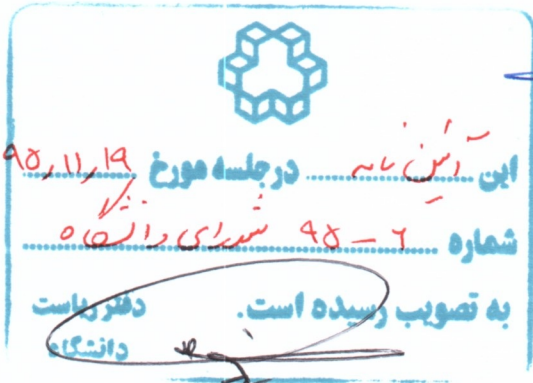 این آئین نامه در جلسه مورخ ۹۵٫۱۱٫۱۹
شماره ۶ - ۹۵ شورای دانشگاه
به تصویب رسیده است.
دفتر ریاست
دانشگاه